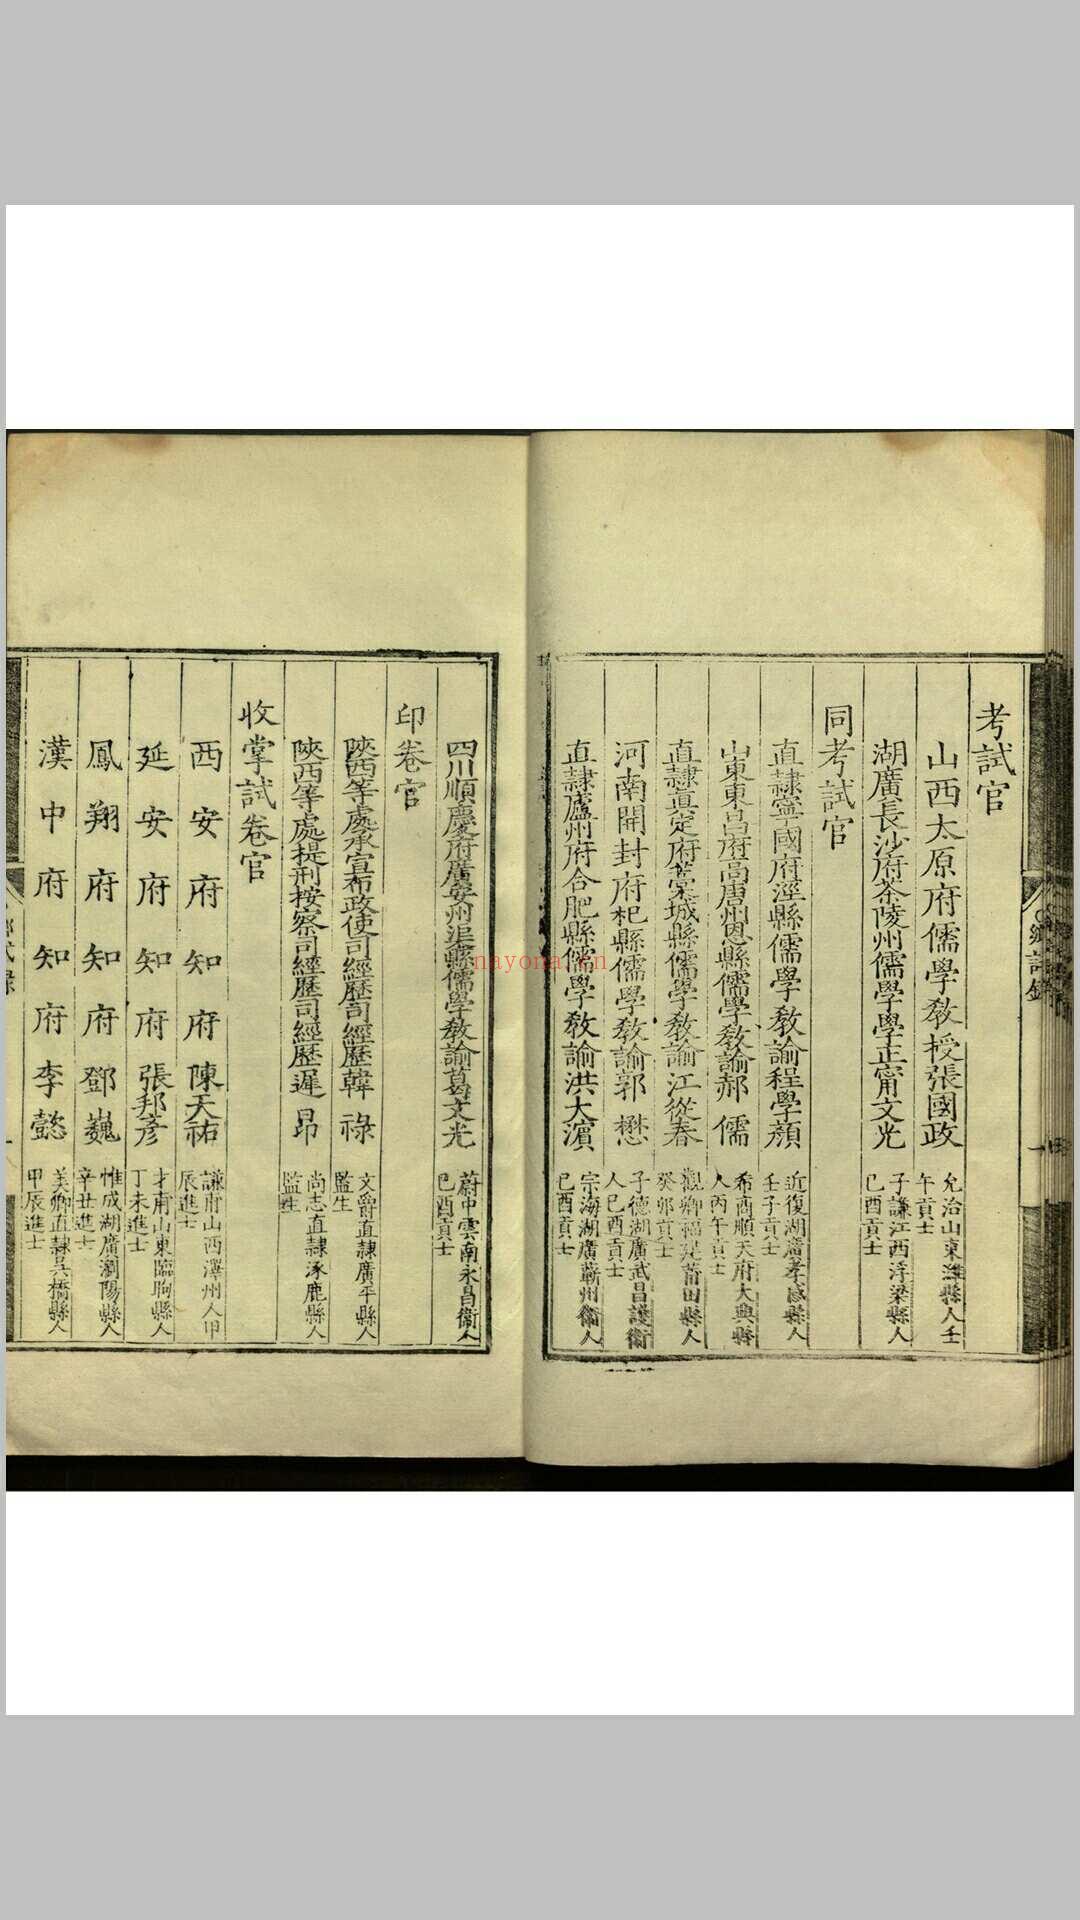 考試官
山西太原府儒學教授張國政
允治山東濰縣人壬
午貢士
湖廣長沙府茶陵州儒學學正甯文光
子謙江西浮梁縣人
己酉貢士
同考試官
直隷寧國府涇縣儒學教諭程學顏
近復湖廣孝感縣人
壬子貢士
山東東昌府高唐州恩縣儒學教諭郝儒
希商順天府大興縣
人丙午貢士
直隷真定府藁城縣儒學教諭江從春
觀卿福建莆田縣人
癸卯貢士
河南開封府杞縣儒學教諭郭懋
子德湖廣武昌護衛
人己酉貢士
直隷廬州府合肥縣儒學教諭洪大濵
宗海湖廣蘄州衛人
己酉貢士
四川順慶府廣安州渠縣儒學教諭葛文光
蔚中雲南永昌衛人
己酉貢士
印卷官
陝西等處承宣布政使司經歷司經歷韓祿
文爵直隷廣平縣人
監生
陝西等處提刑按察司經歷司經歷遲昂
尚志直隷涿鹿縣人
監生
收掌試卷官
西安府知府陳天祐
謙甫山西澤州人甲
辰進士
延安府知府張邦彥
才甫山東臨朐縣人
丁未進士
鳳翔府知府鄧巍
惟成湖廣瀏陽縣人
辛丑進士
漢中府知府李懿
美卿直隷吳橋縣人
甲辰進士
鄉試錄
nayona.cn